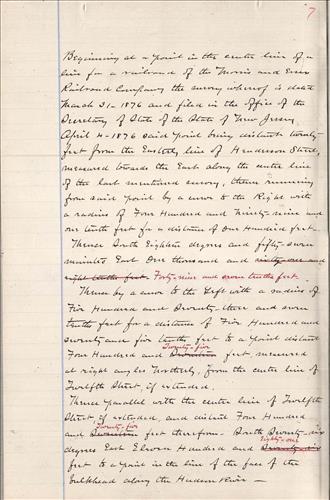 7
Beginning at a point in the center line of a
line for a railroad of the Morris and Essex
Railroad Company the survey whereof is dated
March 31-1876 and filed in the office of the
Secretary of State of the State of New Jersey
April 4-1876 said point being distant twenty
feet from the Easterly line of Henderson Street,
measured towards the East along the center line
of the last mentioned survey, thence running
from said point by a curve to the Right with
a radius of Four Hundred and Thirty-nine and
one tenth feet for a distance of One Hundred feet.
Thence South Eighteen degrees and fifty-seven
minutes East One thousand and sixty-one and
eight tenths feet. Forty-nine and seven tenths feet
Thence by a curve to the Left with a radius of
Five Hundred and Seventy-three and seven
tenths feet for a distance of Five Hundred and
seventy and five tenths feet to a point distant
Twenty-five
Four Hundred and Seventeen feet, measured
at right angles Northerly, from the center line of
Twelfth Street, if extended.
Thence parallel with the center line of Twelfth
Street, if extended, and distant Four Hundred
Twenty-five
and Seventeen feet therefrom. South Seventy-six
Eighty-one
degrees East Eleven Hundred and Seventy-six
feet to a point in the line of the face of the
bulkhead along the Hudson River —